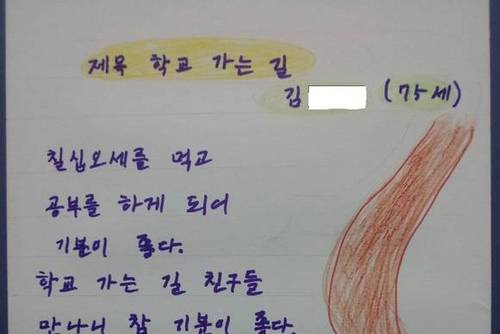 제목 학교 가는 길
김 (75세)
칠십오세를 먹고
공부를 하게 되어
기분이 좋다.
학교 가는 길 친구들
만나니 참 기분이 좋다.